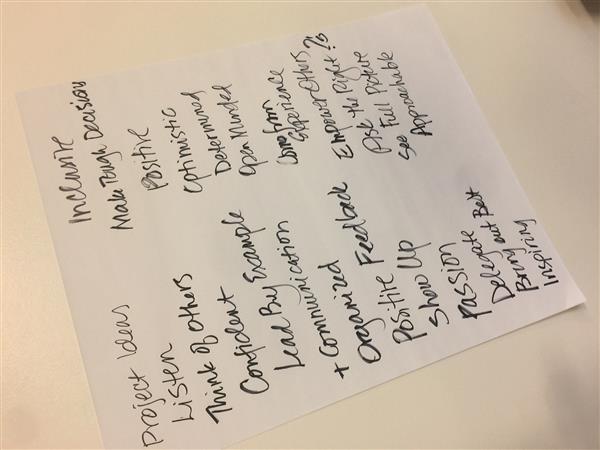 Project Ideas
Listen
Think of Others
Confident
Lead By Example
+ Communication
Organized
Positive Feedback
Show Up
Passion
Delegate
Bring out Best
Inspiring
Inclusive
Make Tough Decisions
Positive
Optimistic
Determined
Open Minded
Come from
Experience
Empower Others
Ask the Right ?s
See Full Picture
Approachable